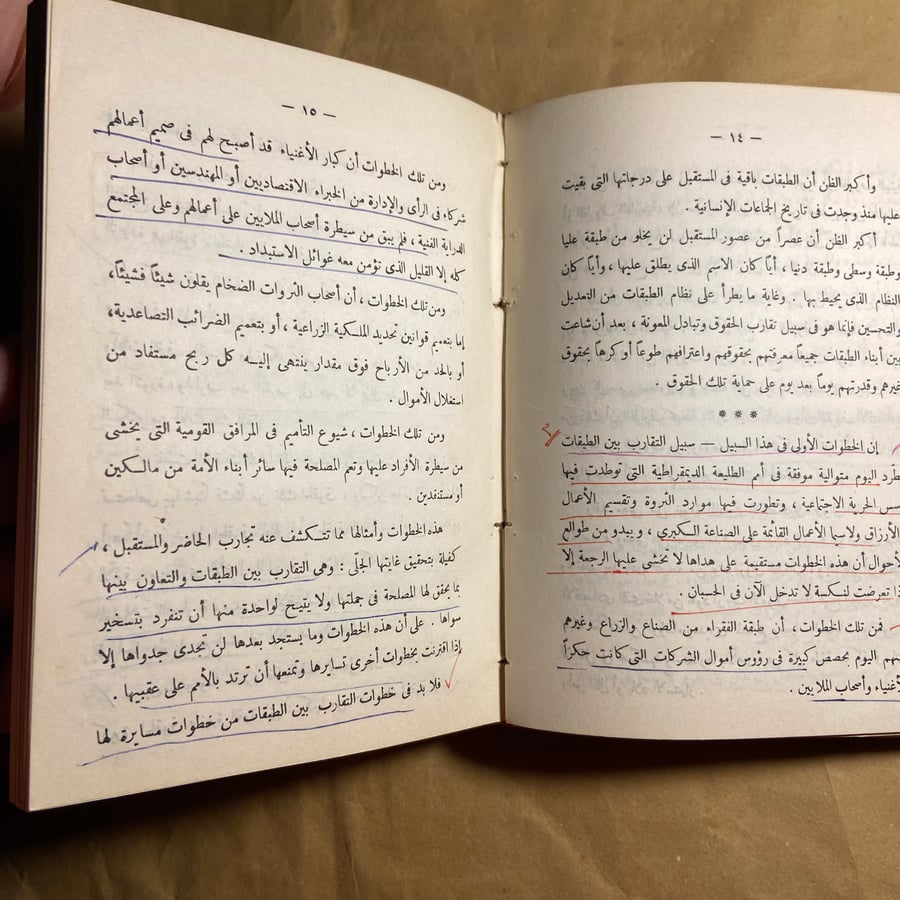 — ١٤ —
وأكبر الظن أن الطبقات باقية فى المستقبل على درجاتها التى بقيت
عليها منذ وجدت فى تاريخ الجماعات الإنسانية .
أكبر الظن أن عصراً من عصور المستقبل لن يخلو من طبقة عليا
وطبقة وسطى وطبقة دنيا ، أياً كان الاسم الذى يطلق عليها ، وأياً كان
النظام الذى يحيط بها . وغاية ما يطرأ على نظام الطبقات من التعديل
والتحسين فإنما هو فى سبيل تقارب الحقوق وتبادل المعونة ، بعد أن شاعت
بين أبناء الطبقات جميعاً معرفتهم بحقوقهم واعترافهم طوعاً أو كرهاً بحقوق
غيرهم وقدرتهم يوماً بعد يوم على حماية تلك الحقوق .
* * *
إن الخطوات الأولى فى هذا السبيل — سبيل التقارب بين الطبقات
اليوم متوالية موفقة فى أمم الطليعة الديمقراطية التى توطدت فيها
الحرية الاجتماعية ، وتطورت فيها موارد الثروة وتقسيم الأعمال
الأرزاق ولاسيما الأعمال القائمة على الصناعة الكبرى ، ويبدو من طوالع
الأحوال أن هذه الخطوات مستقيمة على هداها لا تخشى عليها الرجعة إلا
تعرضت لنكسة لا تدخل الآن فى الحسبان .
فمن تلك الخطوات ، أن طبقة الفقراء من الصناع والزراع وغيرهم
اليوم بحصص كبيرة فى رؤوس أموال الشركات التى كانت حكراً
وأصحاب الملايين .
— ١٥ —
ومن تلك الخطوات أن كبار الأغنياء قد أصبح لهم فى صميم أعمالهم
شركاء فى الرأى والإدارة من الخبراء الاقتصاديين أو المهندسين أو أصحاب
الدراية الفنية ، فلم يبق من سيطرة أصحاب الملايين على أعمالهم وعلى المجتمع
كله إلا القليل الذى تؤمن معه غوائل الاستبداد .
ومن تلك الخطوات ، أن أصحاب الثروات الضخام يقلون شيئاً فشيئاً،
إما بتعميم قوانين تحديد الملكية الزراعية ، أو بتعميم الضرائب التصاعدية،
أو بالحد من الأرباح فوق مقدار ينتهى إليه كل ربح مستفاد من
استغلال الأموال .
ومن تلك الخطوات ، شيوع التأميم فى المرافق القومية التى يخشى
من سيطرة الأفراد عليها وتعم المصلحة فيها سائر أبناء الأمة من مالكين
أو مستنفدين .
هذه الخطوات وأمثالها مما تتكشف عنه تجارب الحاضر والمستقبل ،
كفيلة بتحقيق غايتها الجلّى : وهى التقارب بين الطبقات والتعاون بينها
بما يحقق لها المصلحة فى جملتها ولا يتيح لواحدة منها أن تنفرد بتسخير
سواها . على أن هذه الخطوات وما يستجد بعدها لن تجدى جدواها إلا
إذا اقترنت بخطوات أخرى تسايرها وتمنعها أن ترتد بالأمم على عقبيها .
فلا بد فى خطوات التقارب بين الطبقات من خطوات مسايرة لها